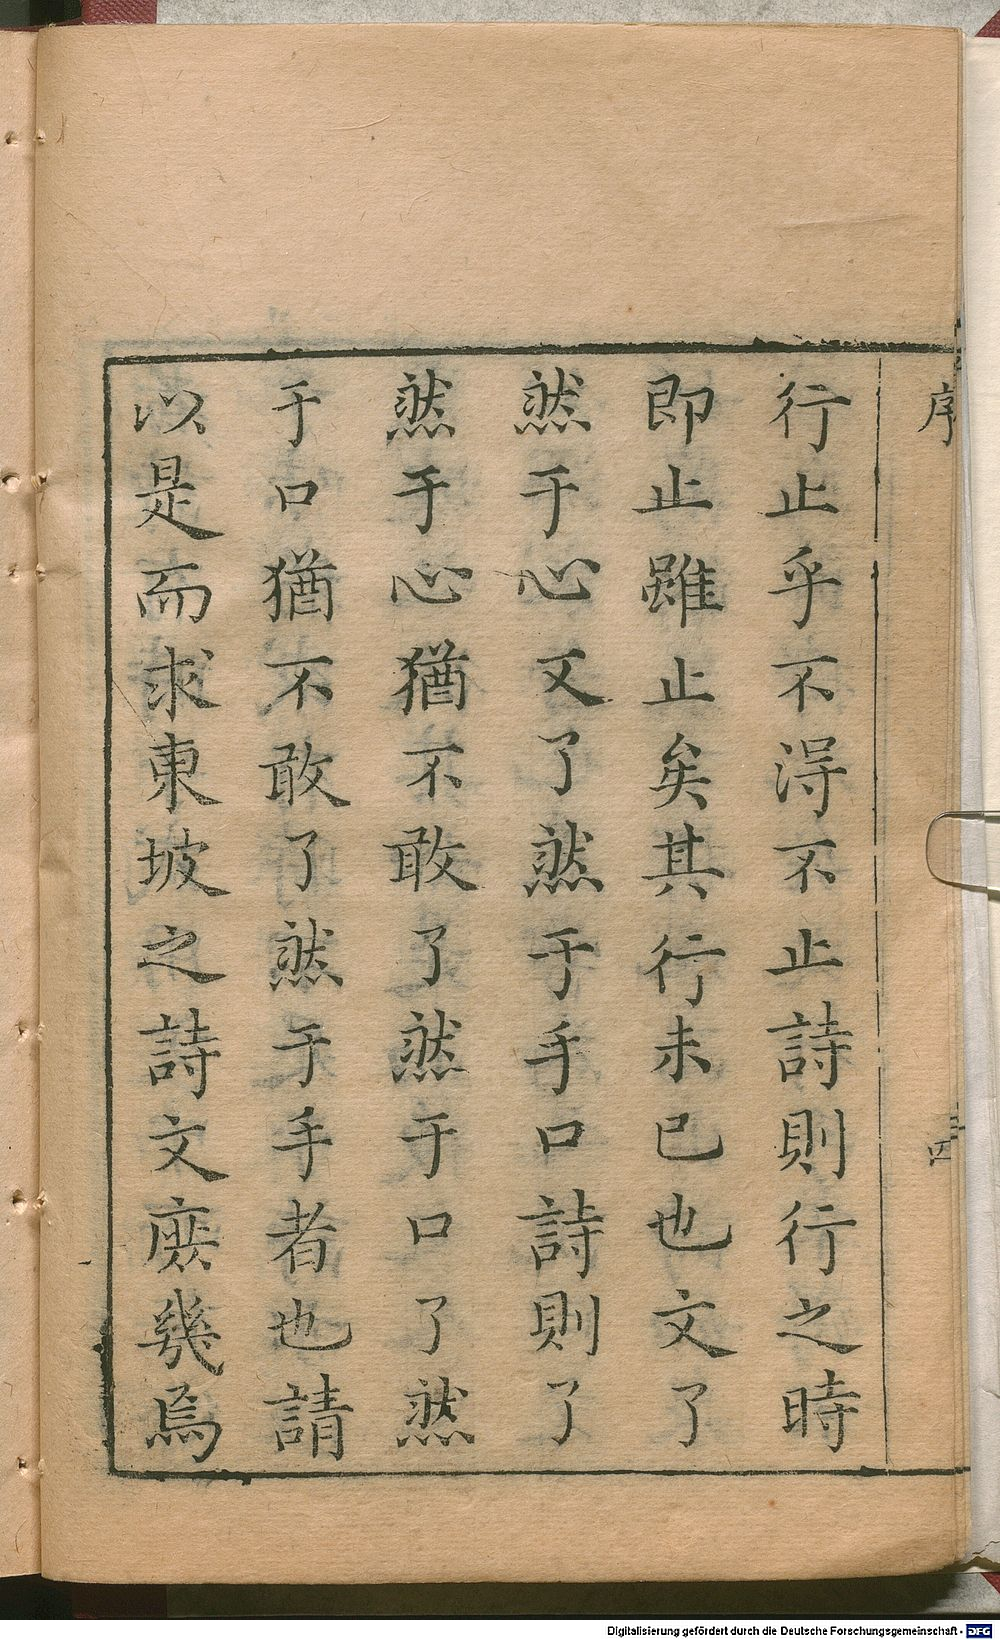 序
四
行止乎不得不止詩則行之時
即止雖止矣其行未已也文了
然于心又了然于手口詩則了
然于心猶不敢了然于口了然
于口猶不敢了然于手者也請
以是而求東坡之詩文庶幾焉
Digitalisierung gefördert durch die Deutsche Forschungsgemeinschaft - DFG